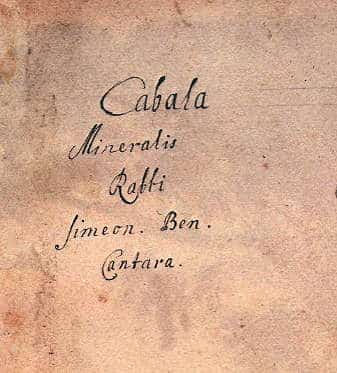 Cabala
Mineralis
Rabbi
Simeon. Ben.
Cantara.